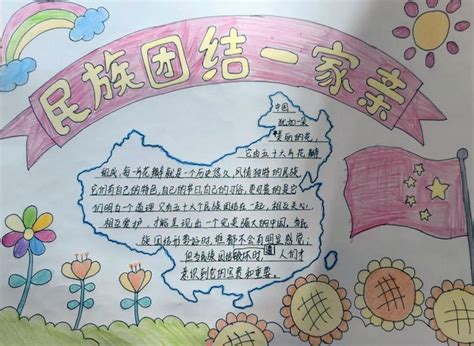 民族团结一家亲
中国
就如一朵
美丽的花,
它由五十六片花瓣
组成,每一片花瓣就是一个历史悠久,风情独特的民族,
它们有自己的特色,自己的节日,自己的习俗,更可贵的是它
们明白一个道理:只有五十六个民族团结在一起,相互关心,
相互爱护,才能呈现出一个完美强大的中国。当民
族团结形势好时,谁都不会有明显感觉;
但当民族团结破坏时, 人们才
意识到它的宝贵和重要。